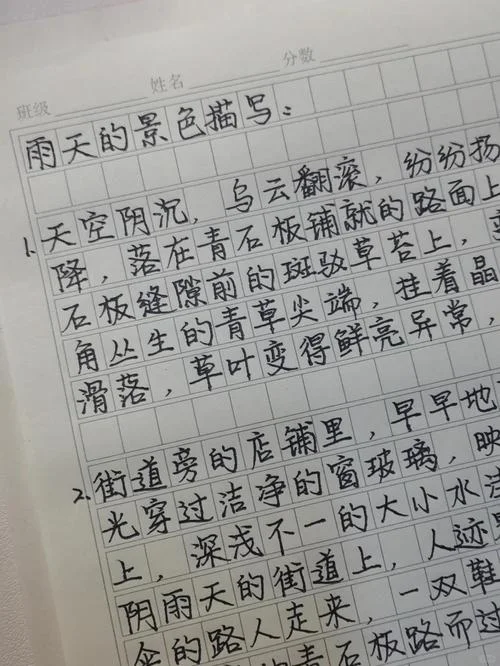 班级 姓名 分数
雨天的景色描写:
1. 天空阴沉，乌云翻滚，纷纷扬
降，落在青石板铺就的路面上
石板缝隙前的斑驳草苔上，
角丛生的青草尖端，挂着晶
滑落，草叶变得鲜亮异常，
2. 街道旁的店铺里，早早地
光穿过洁净的窗玻璃，映
上，深浅不一的大小水洼
阴雨天的街道上，人迹
伞的路人走来，一双鞋
的青石板路而过